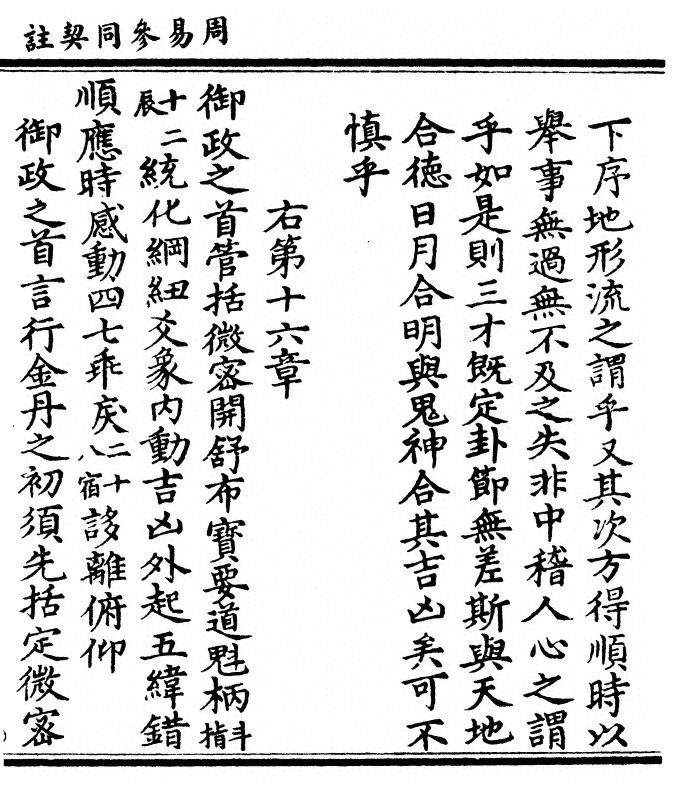 周易參同契註
下序地形流之謂乎又其次方得順時以
舉事無過無不及之失非中稽人心之謂
乎如是則三才既定卦節無差斯與天地
合德日月合明與鬼神合其吉凶矣可不
慎乎
右第十六章
御政之首管括微密開舒布寶要道魁柄斗指
十二辰統化綱紐爻象內動吉凶外起五緯錯
順應時感動四七乖戾二十八宿誃離俯仰
御政之首言行金丹之初須先括定微密